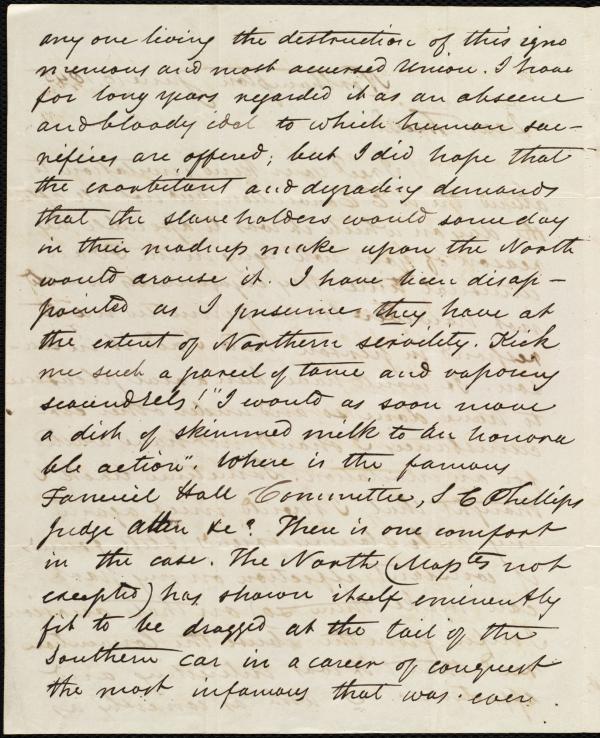 any one living the destruction of this igno
minious and most accursed Union. I have
for long years regarded it as an obscene
and bloody idol to which human sac-
rifices are offered; but I did hope that
the exorbitant and degrading demands
that the slaveholders would some day
in their madness make upon the North
would arouse it. I have been disap-
pointed as I presume they have at
the extent of Northern servility. Kick
me such a parcel of tame and vapouring
scoundrels! "I would as soon move
a dish of skimmed milk to an honora
ble action". Where is the famous
Faneuil Hall Committee, S C Phillips
Judge Allen &c? There is one comfort
in the case. The North (Massts not
excepted) has shown itself eminently
fit to be dragged at the tail of the
Southern car in a career of conquest
the most infamous that was ever